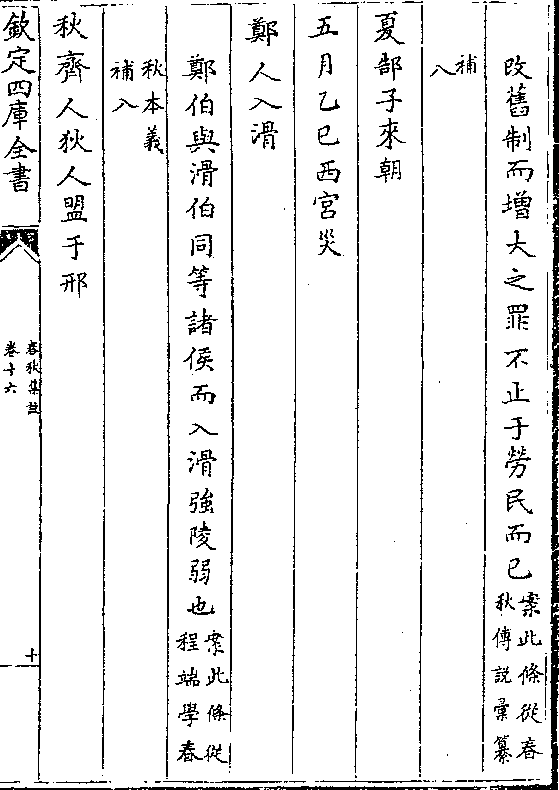 改舊制而増大之罪不止于勞民而已案此條從春
秋傳説彙纂
補
入
夏郜子來朝
五月乙巳西宮災
鄭人入滑
鄭伯與滑伯同等諸侯而入滑強陵弱也案此條從
程端學春
秋本義
補入
秋齊人狄人盟于邢
欽定四庫全書
春秋集註
卷十六
十